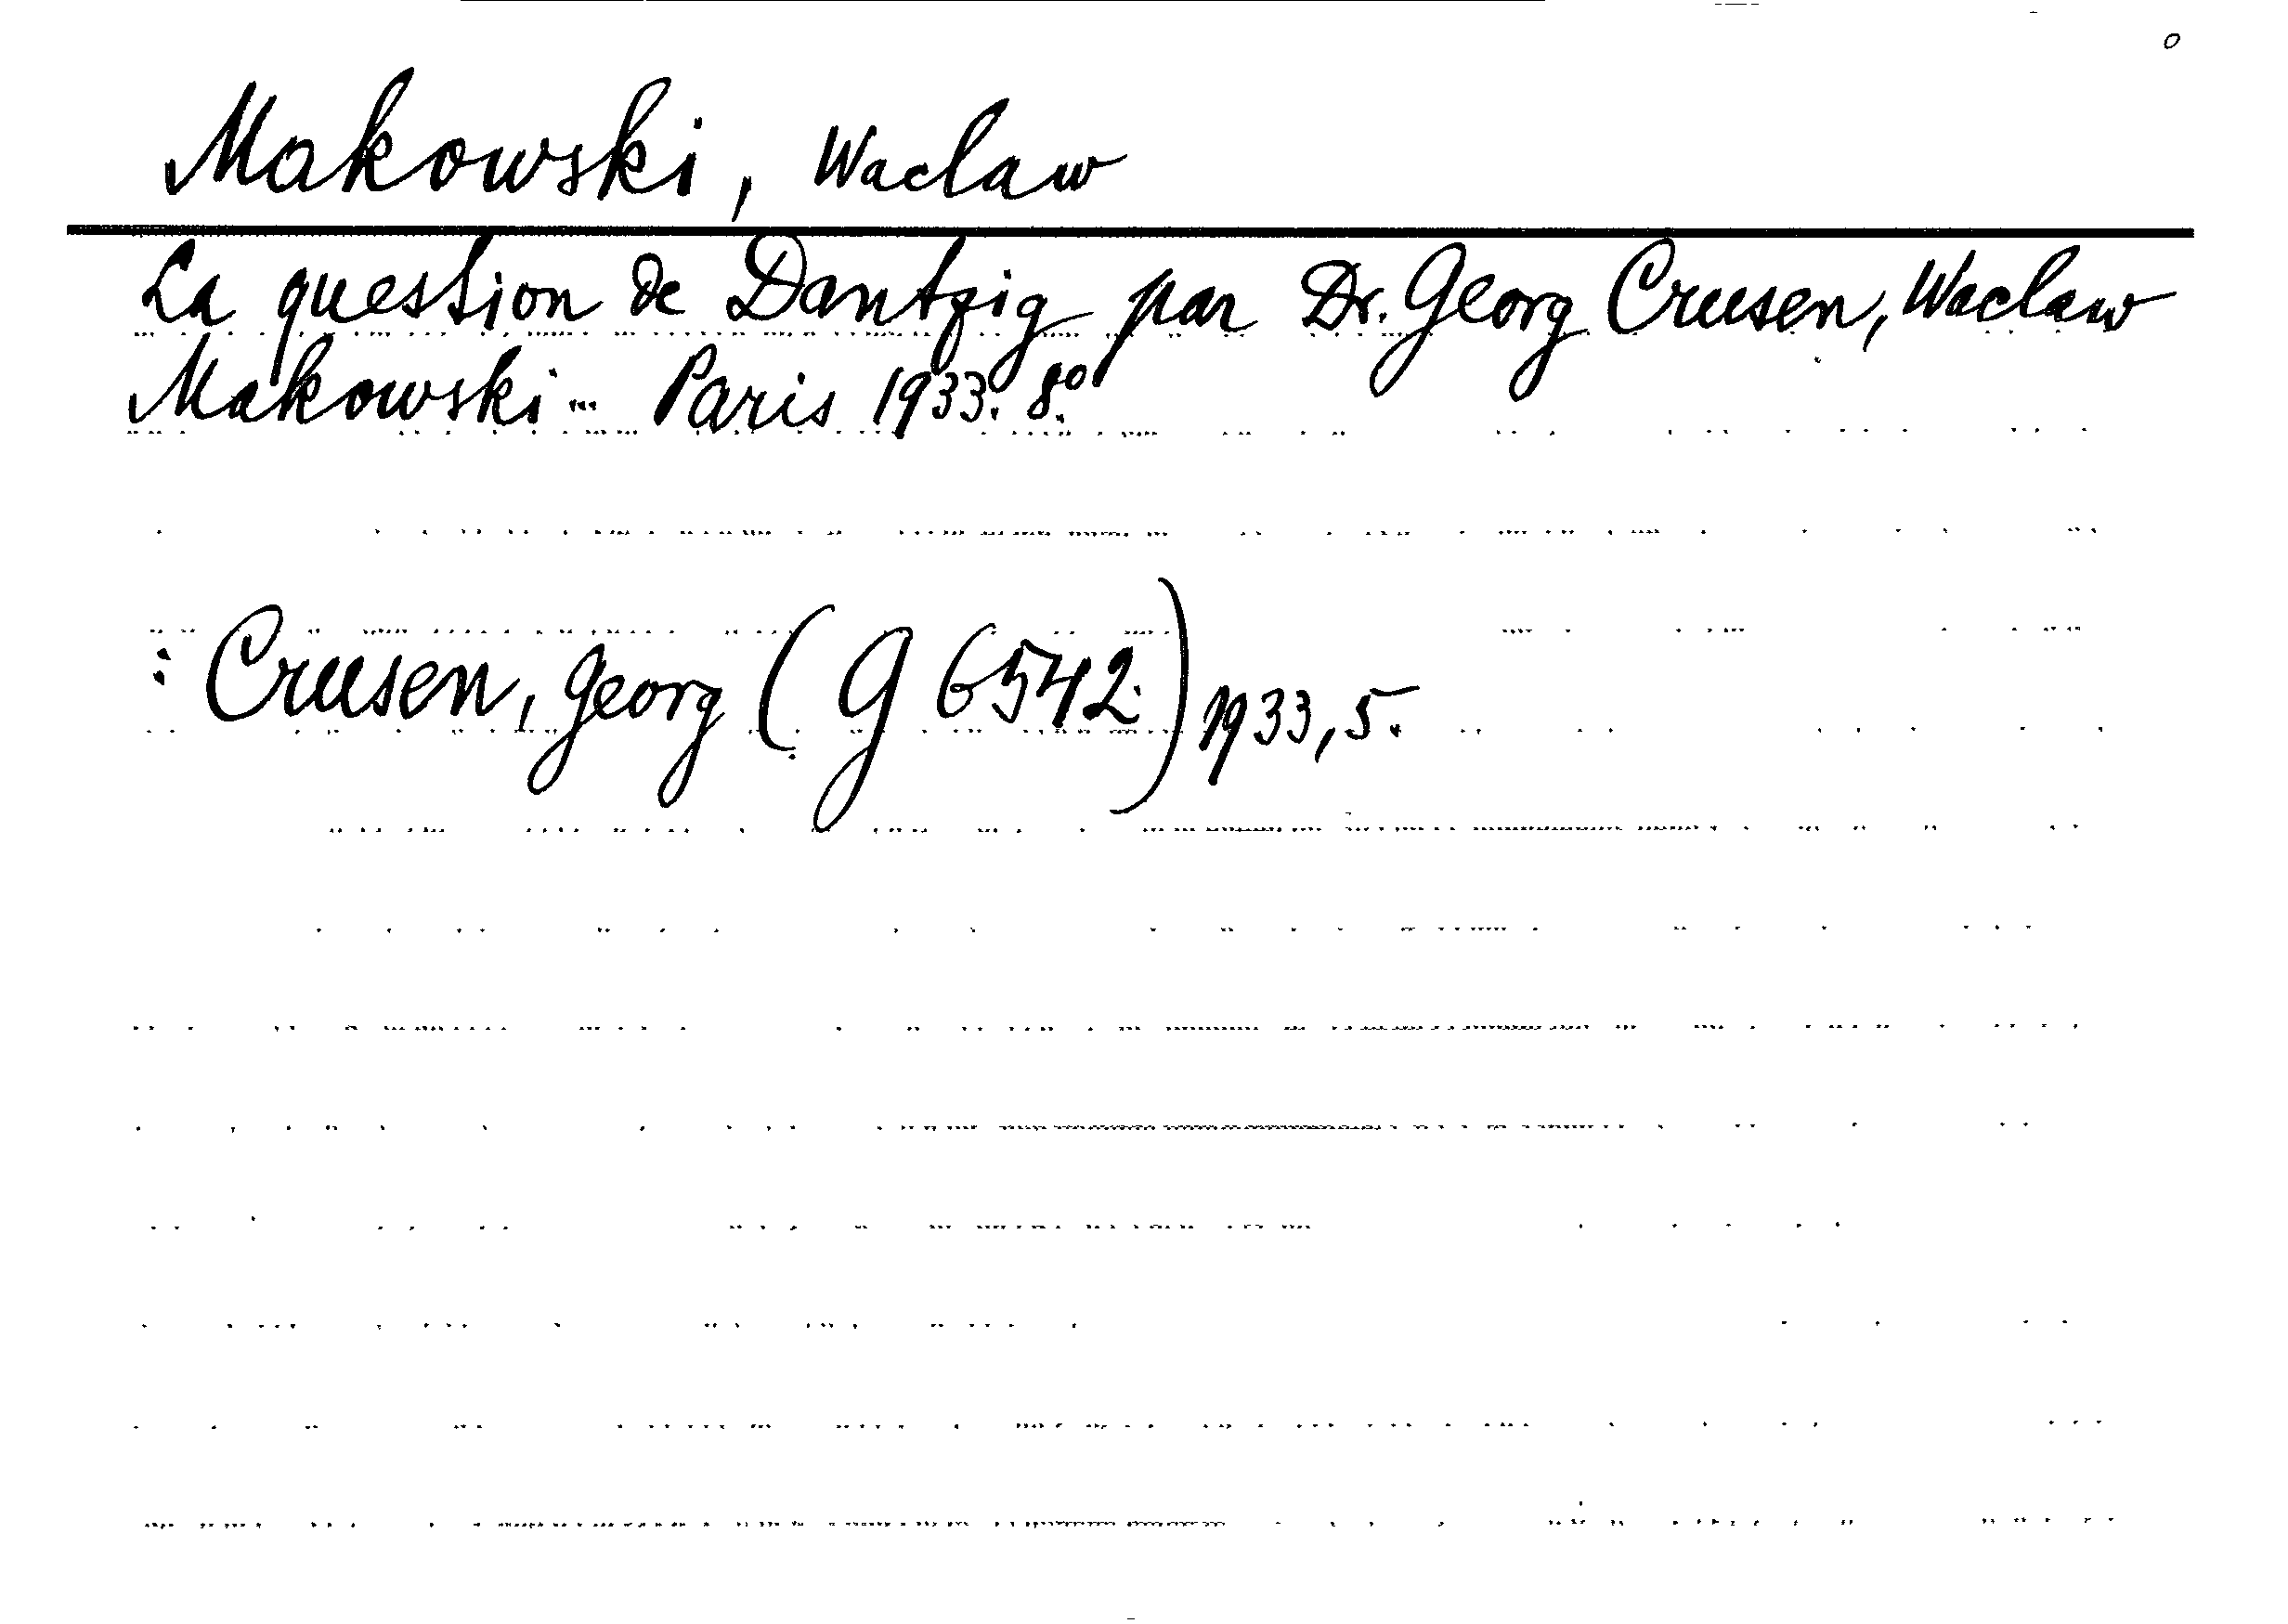 Makowski, Waclaw
La question de Dantzig par Dr. Georg Crusen, Waclaw
Makowski... Paris 1933. 8.°
: Crusen, Georg (G 6542.) 1933,5.